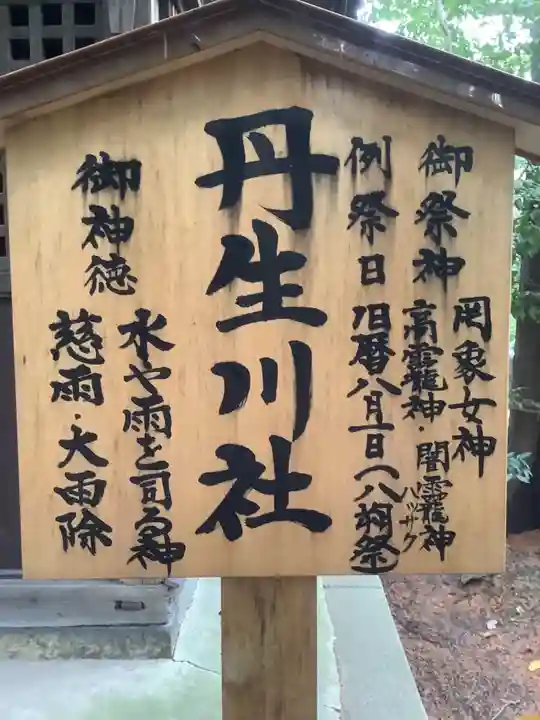 御祭神
罔象女神
高龗神・闇龗神
例祭日 旧暦八月一日(八朔祭)
ハッサク
丹生川社
御神徳
水や雨を司る神
慈雨・大雨除